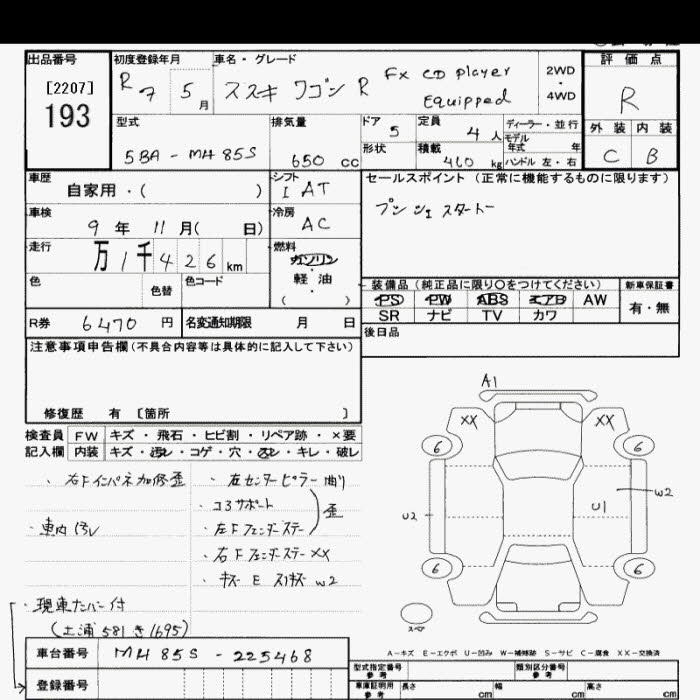 出品番号
[2207]
193
初度登録年月
R7 5月
車名・グレード
スズキ ワゴンR FX CD player Equipped
2WD・4WD
評価点
R
型式
5BA - MH85S
排気量
650 cc
ドア
5
形状
定員
4人
積載
kg
ディーラー・並行
モデル年式 年
ハンドル 左・右
外装 内装
C B
車歴
自家用・( )
シフト
I AT
セールスポイント (正常に機能するものに限ります)
プッシュスタート
車検
9年 11月( 日)
冷房
AC
走行
万 1千 4 2 6 km
燃料
ガソリン
軽・油
( )
色
色替
色コード
装備品 (純正品に限り○をつけてください)
PS PW ABS エアB AW
SR ナビ TV カワ
新車保証書
有・無
R券
6470 円
名変通知期限 月 日
後日品
注意事項申告欄 (不具合内容等は具体的に記入して下さい)
修復歴 有 [箇所 ]
検査員記入欄
FW キズ・飛石・ヒビ割・リペア跡・×要
内装 キズ・汚レ・コゲ・穴・スレ・キレ・破レ
・右Fインパネ加修歪
・車内汚レ
・左センターピラー曲り
・コアサポート
・左Fフェンダーステー
歪
・右Fフェンダーステー XX
・キズ E スリキズ W2
・現車ナンバー付
(土浦 581 き 1695)
A1
XX XX
6 6
U2 U1 W2
6 6
スペア
A-キズ E-エクボ U-凹み W-補修跡 S-サビ C-腐食 XX-交換済
車台番号
MH85S - 225468
登録番号
型式指定番号
参考
類別区分番号
参考
車庫証明用
参考
長さ cm 幅 cm 高さ cm